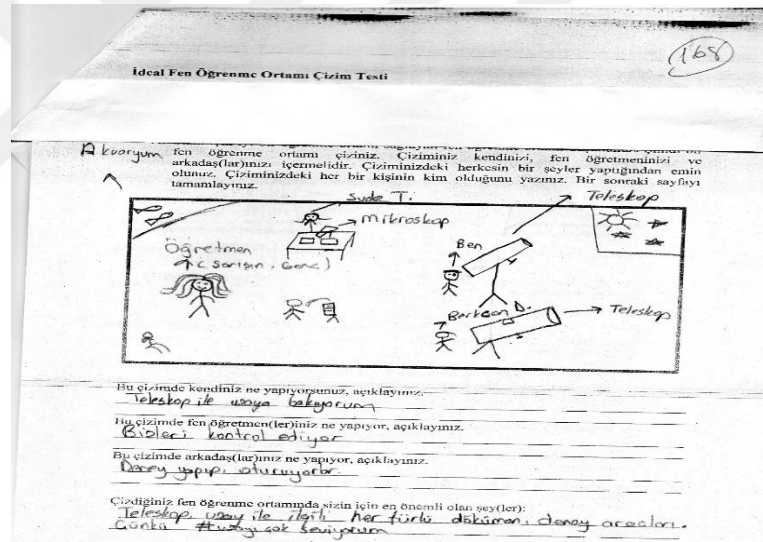 168
İdeal Fen Öğrenme Ortamı Çizim Testi
Akvaryum
fen öğrenme ortamı çiziniz. Çiziminiz kendinizi, fen öğretmeninizi ve
arkadaş(lar)ınızı içermelidir. Çiziminizdeki herkesin bir şeyler yaptığından emin
olunuz. Çiziminizdeki her bir kişinin kim olduğunu yazınız. Bir sonraki sayfayı
tamamlayınız.
Sude T.
Teleskop
Mikroskop
Öğretmen
(Sarışın, Genç)
Ben
Berkcan D.
Teleskop
Bu çizimde kendiniz ne yapıyorsunuz, açıklayınız.
Teleskop ile uzaya bakıyorum
Bu çizimde fen öğretmen(ler)iniz ne yapıyor, açıklayınız.
Bizleri kontrol ediyor
Bu çizimde arkadaş(lar)ınız ne yapıyor, açıklayınız.
Deney yapıp, oturuyorlar.
Çizdiğiniz fen öğrenme ortamında sizin için en önemli olan şey(ler):
Teleskop, uzay ile ilgili her türlü döküman, deney araçları.
Çünkü uzayı çok seviyorum